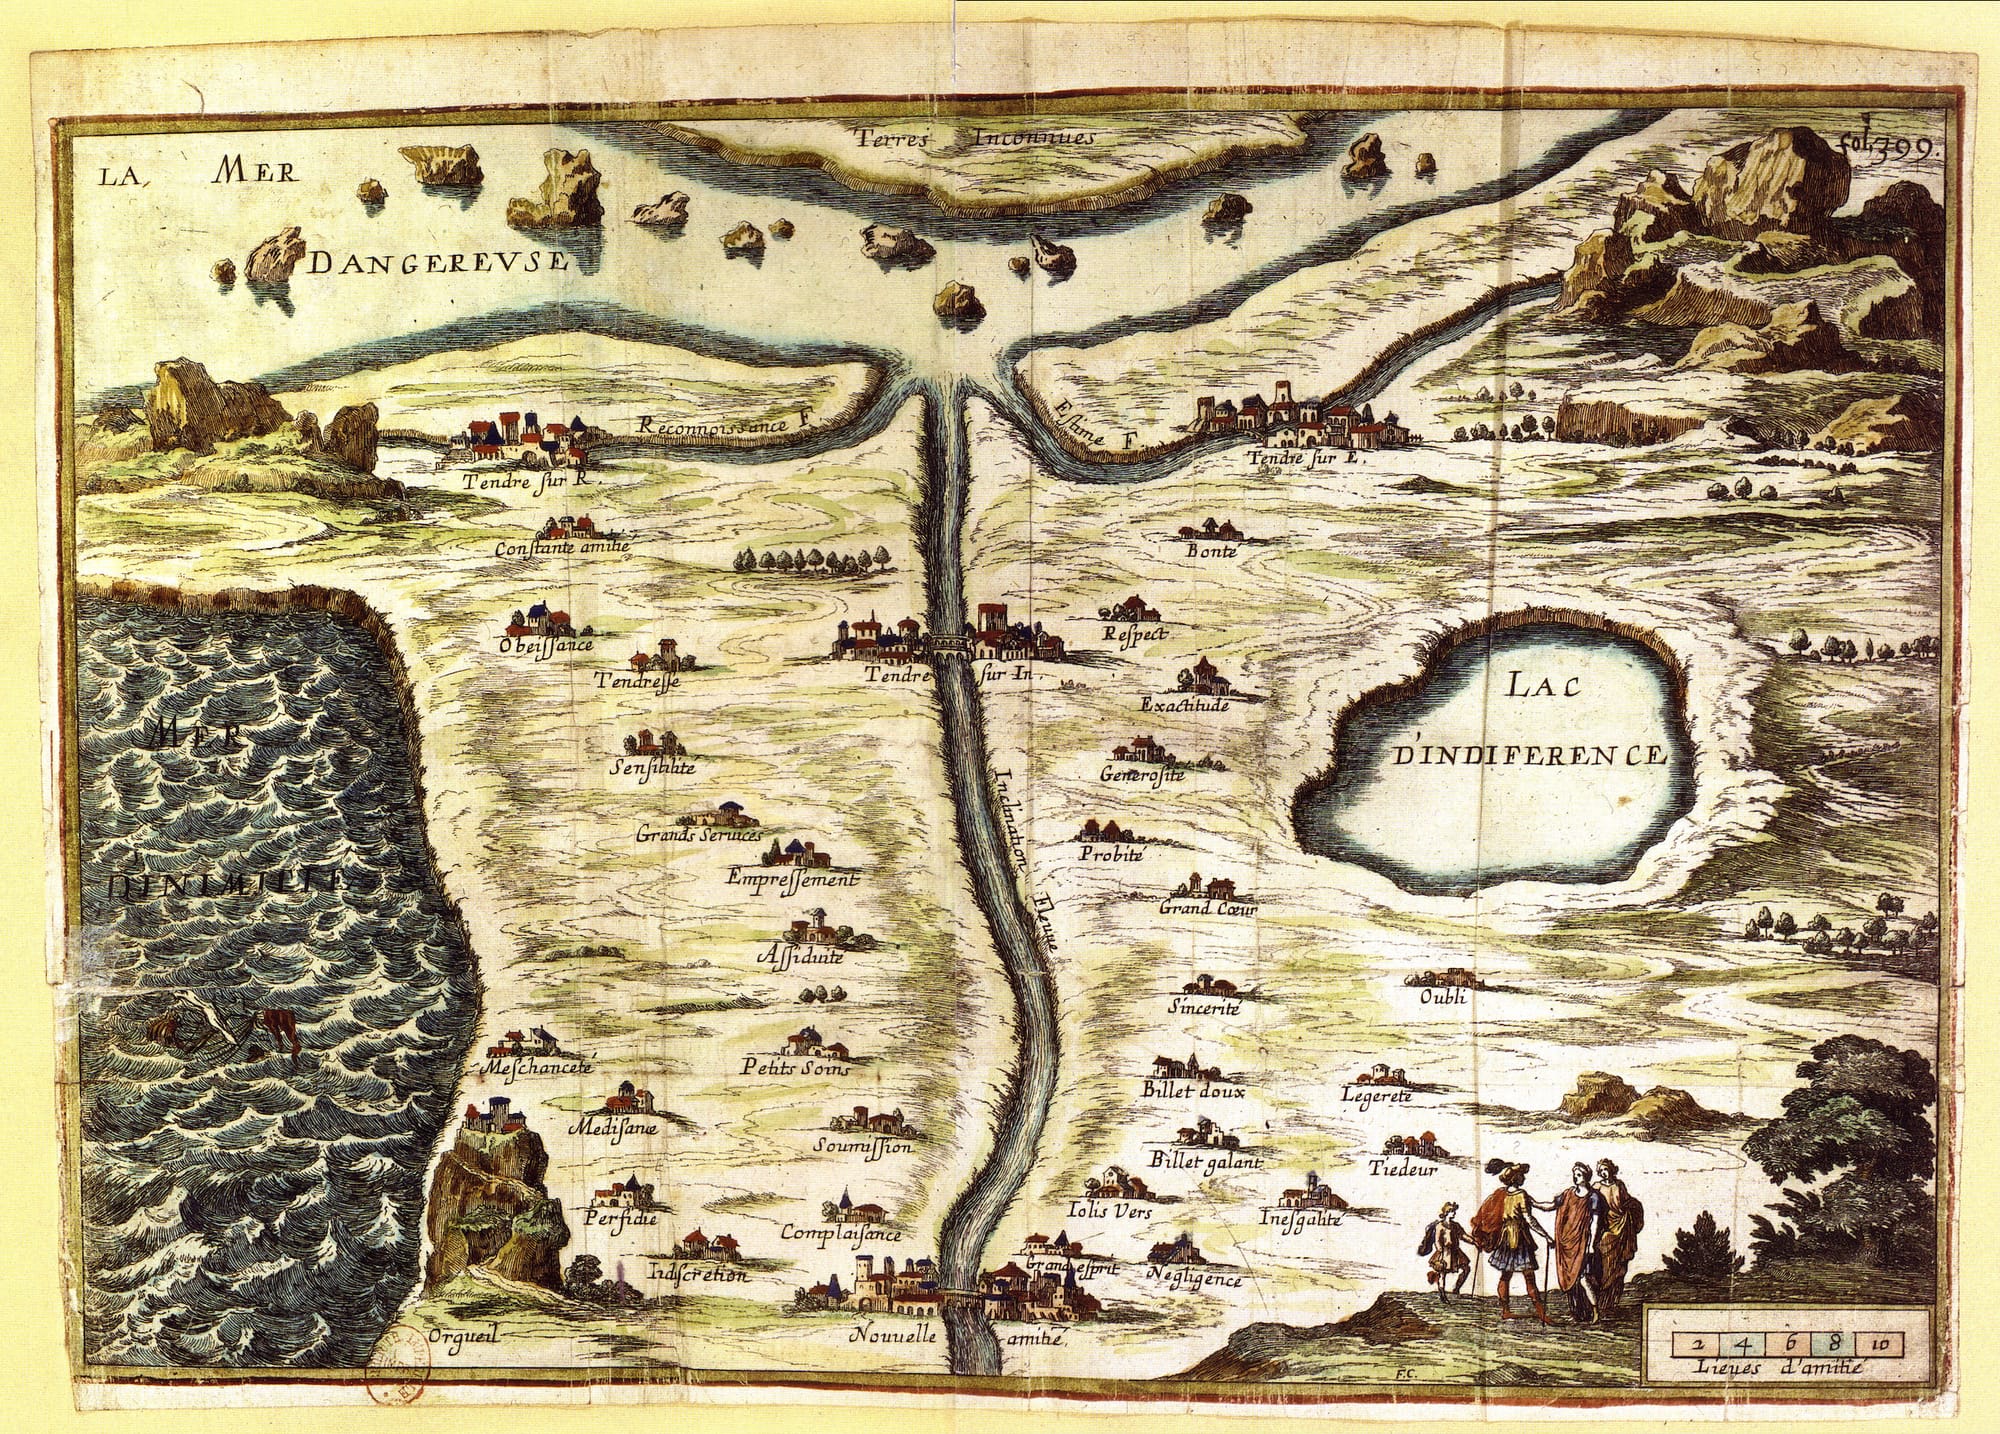 Terres Inconnues
fol. 399.
LA, MER
DANGEREVSE
Reconnoissance F
Estime F
Tendre sur R.
Tendre sur E.
Constante amitié
Bonté
Obeissance
Respect
Tendresse
Tendre sur In.
Exactitude
LAC
D'INDIFERENCE
MER
D'INIMITIE
Sensibilité
Generosité
Inclination Fleuve
Grands Services
Probité
Empressement
Grand Cœur
Assiduité
Sincerité
Oubli
Meschanceté
Petits Soins
Billet doux
Legereté
Medisance
Soumission
Billet galant
Tiedeur
Perfidie
Complaisance
Iolis Vers
Inesgalité
Indiscretion
Grand esprit
Negligence
Orgueil
Nouuelle amitié
2 4 6 8 10
Lieues d'amitié
F.C.